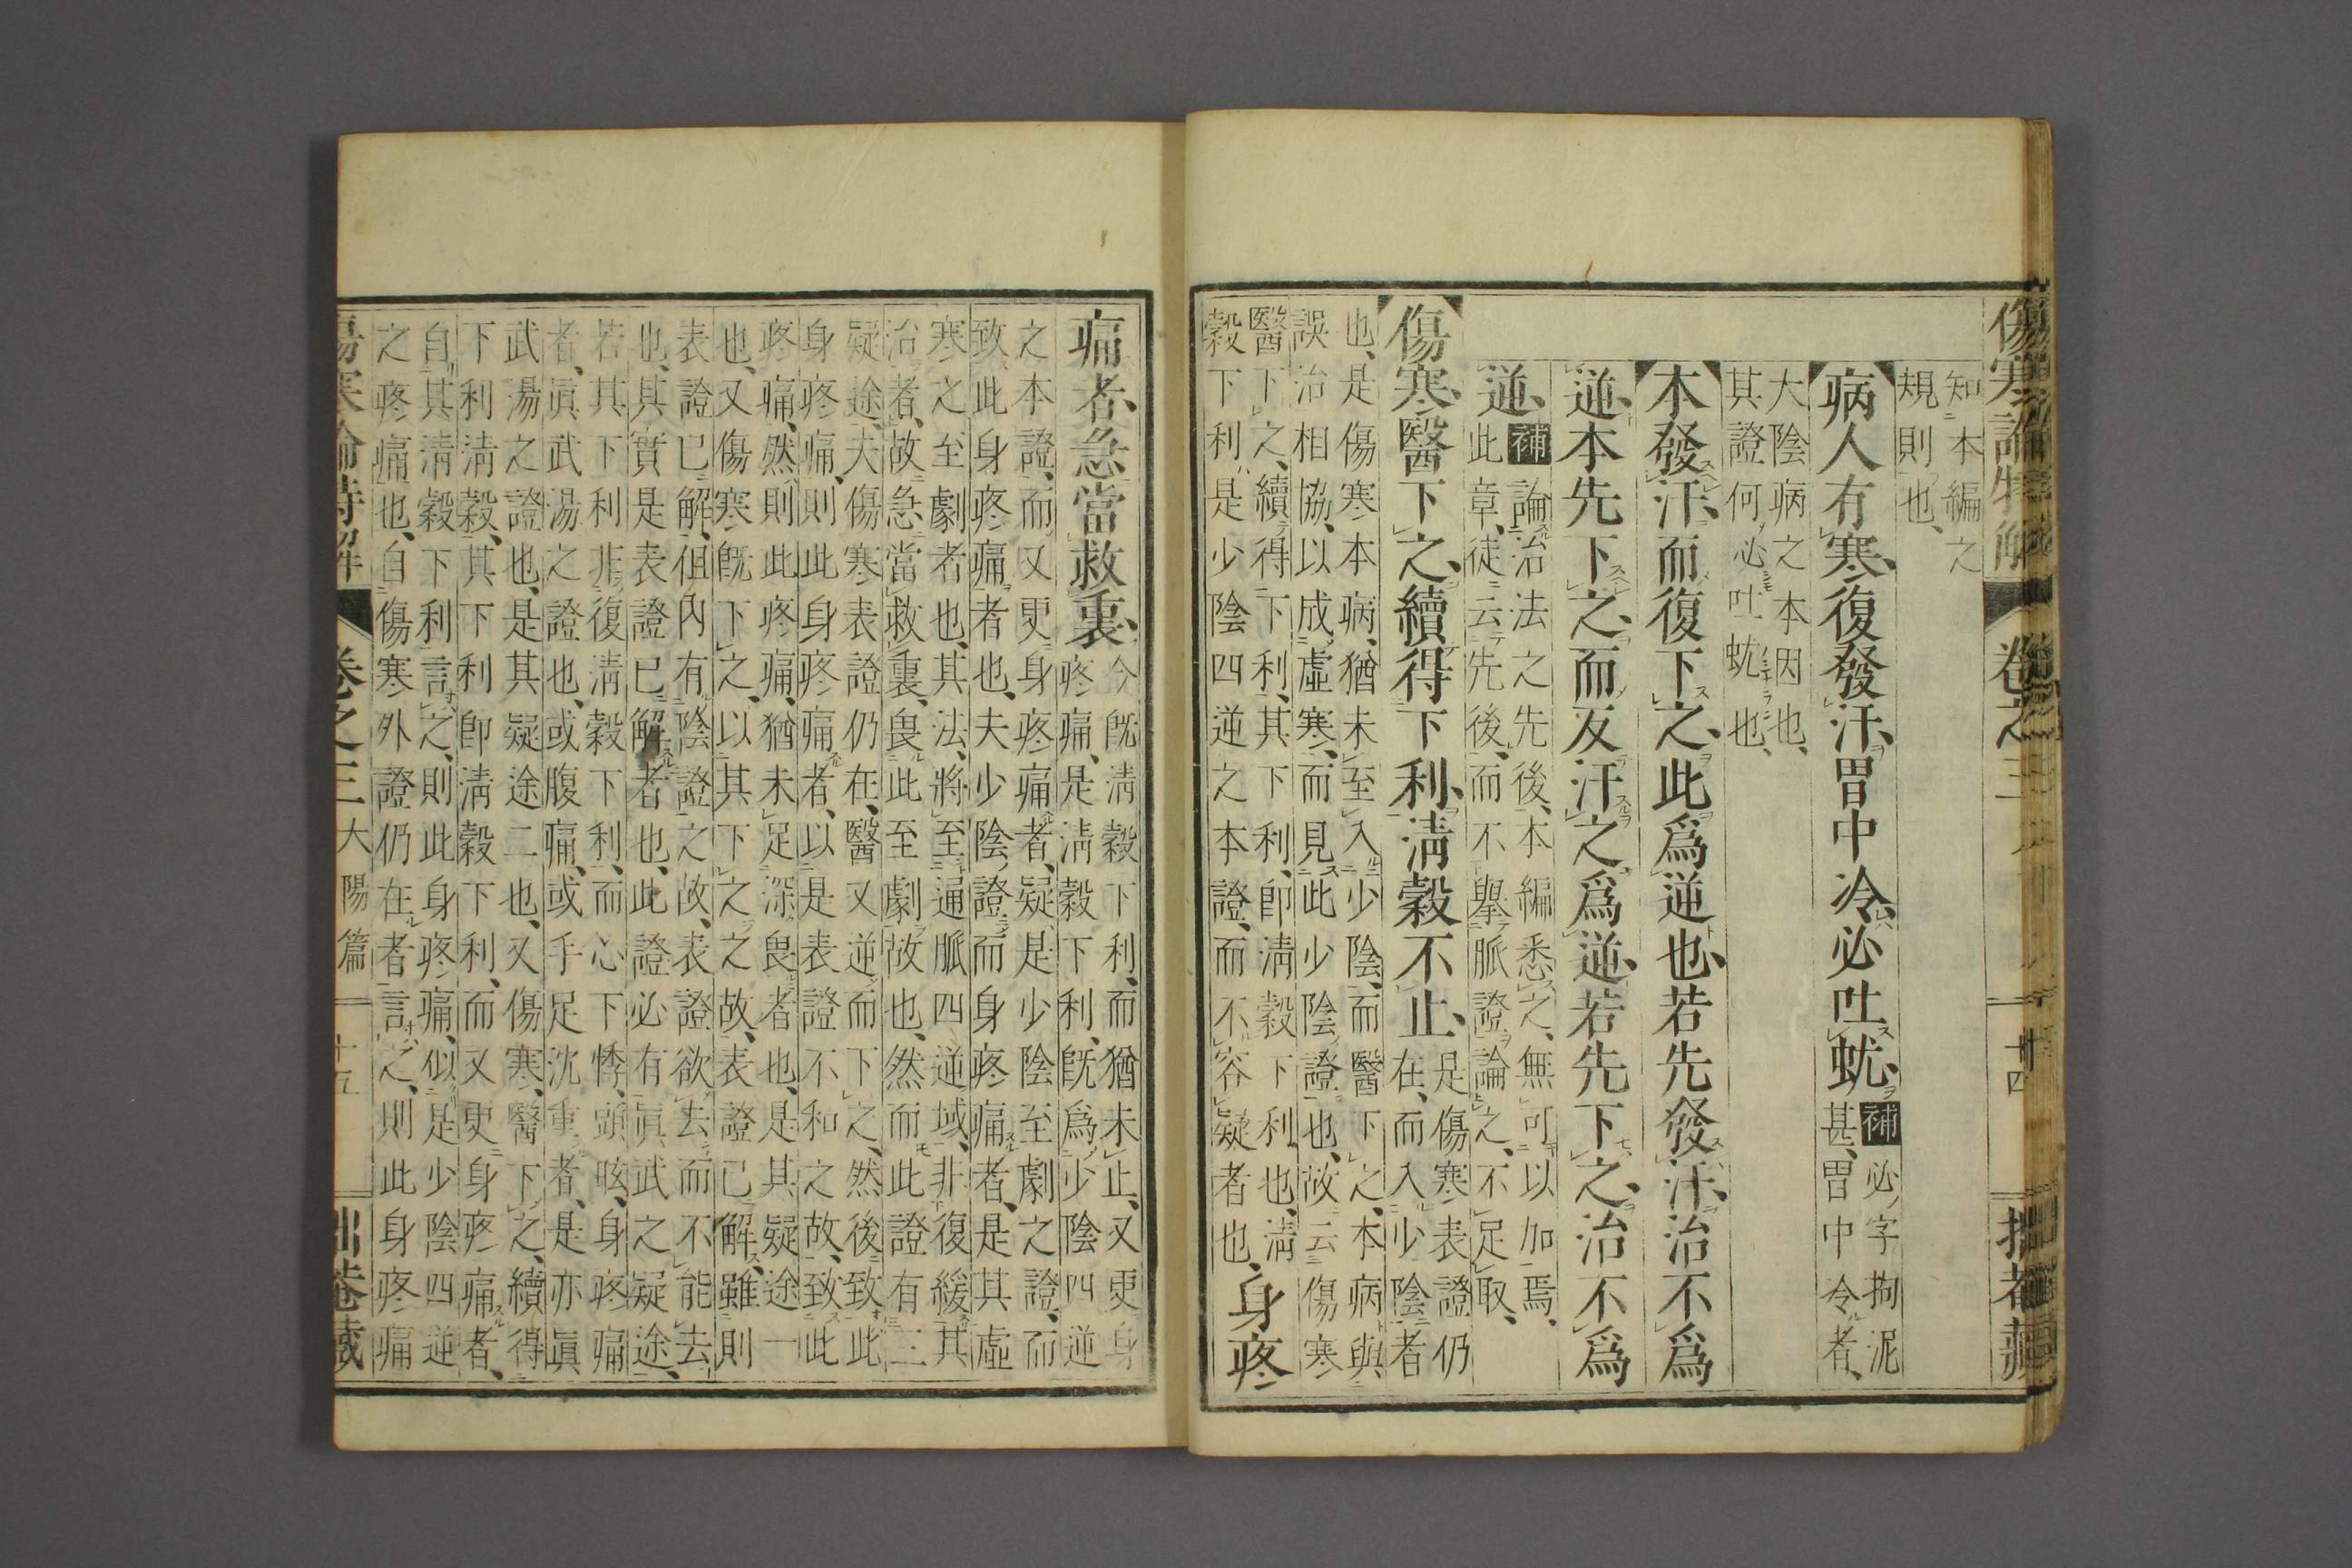 傷寒論特解 卷之三 十四
知本編之
規則也、
病人有寒、復發汗、胃中冷、必吐蚘、補必字拘泥
甚、胃中令者、
大陰病之本因也、
其證何必吐蚘也、
本發汗、而復下之、此爲逆也、若先發汗、治不爲
逆、本先下之、而反汗之、爲逆、若先下之、治不爲
逆、補論治法之先後、本編悉之、無可以加焉、
此章、徒云先後、而不擧脈證論之、不足取、
傷寒、醫下之、續得下利、淸穀不止、是傷寒表證仍
在、而入少陰者
也、是傷寒本病、猶未至入少陰、而醫下之、本病與
誤治相協、以成虛寒、而見此少陰證也、故云傷寒
醫下之、續得下利、其下利、卽淸穀下利也、淸
穀下利、是少陰四逆之本證、而不容疑者也、身疼
痛者、急當救裏、今旣淸穀下利、而猶未止、又更身
疼痛、是淸穀下利、旣爲少陰四逆
之本證、而又更身疼痛者、疑是少陰至劇之證、而
致此身疼痛者也、夫少陰證而身疼痛者、是其虛
寒之至劇者也、其法、將至通脈四逆域、非復緩其
治者、故急當救裏、畏此至劇故也、然而此證有三
疑途、夫傷寒表證仍在、醫又逆而下之、然後致此
身疼痛、則此身疼痛者、以是表證不和之故、致此
疼痛、然則此疼痛、猶未足深畏者也、是其疑途一
也、又傷寒、旣下之、以其下之之故、表證已解、雖則
表證已解、但內有陰證之故、表證欲去而不能去
也、其實是表證已解者也、此證必有眞武之疑途、
若其下利、非復淸穀下利、而心下悸、頭眩、身疼痛
者、眞武湯之證也、或腹痛、或手足沈重者、是亦眞
武湯之證也、是其疑途二也、又傷寒、醫下之、續得
下利淸穀、其下利卽淸穀下利、而又更身疼痛者、
自其淸穀下利言之、則此身疼痛、似是少陰四逆
之疼痛也、自傷寒外證仍在者言之、則此身疼痛
傷寒論特解 卷之三 大陽篇 十五